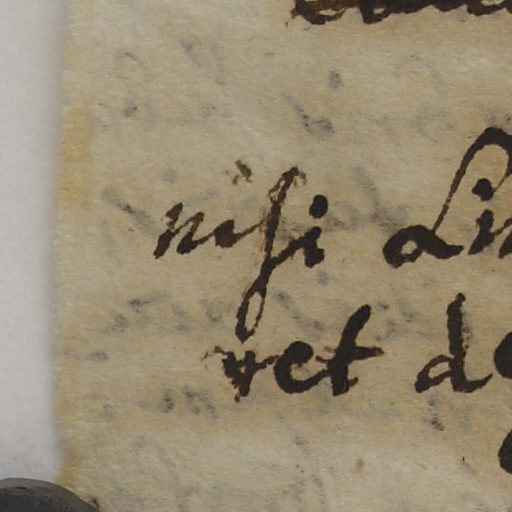 nisi Lin
ret de